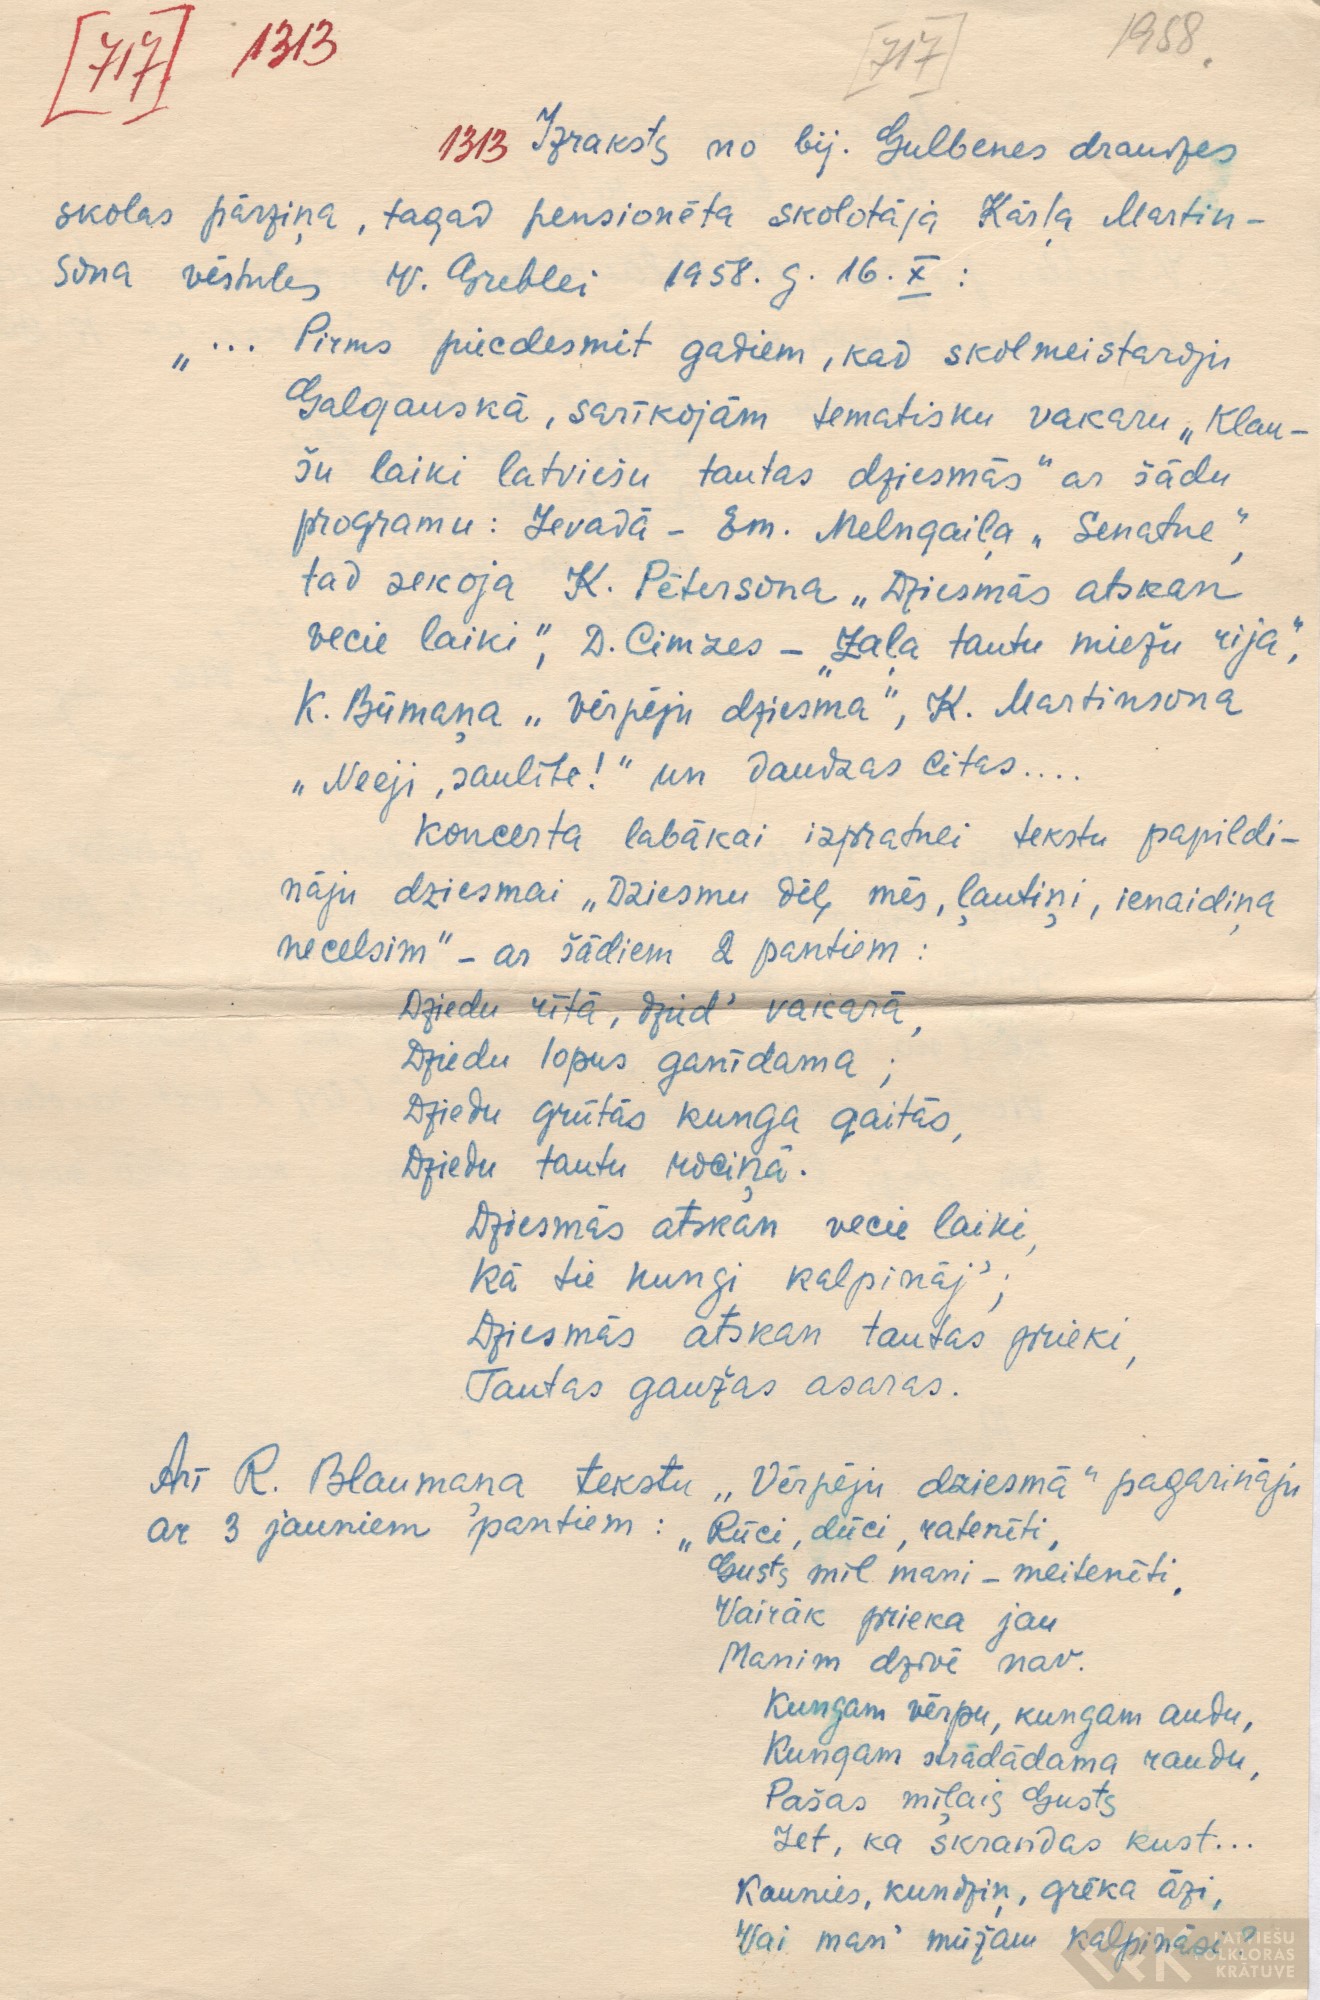 [717] 1313 [717] 1958.
1313 Izraksts no bij. Gulbenes draudzes
skolas pārziņa, tagad pensionēta skolotāja Kārļa Martin-
sona vēstules V. Greblei 1958. g. 16. X :
„ ... Pirms piecdesmit gadiem, kad skolmeistaroju
Galgauskā, sarīkojām tematisku vakaru „Klau-
šu laiki latviešu tautas dziesmās“ ar šādu
programu: Ievadā – Em. Melngaiļa „Senatne“,
tad sekoja K. Pētersona „Dziesmās atskan
vecie laiki“, D. Cimzes – „Zaļa tautu miežu rija“,
K. Būmaņa „Vērpēju dziesma“, K. Martinsona
„Neej, saulīte!“ un daudzas citas....
Koncerta labākai izpratnei tekstu papildi-
nāju dziesmai „Dziesmu dēļ mēs, ļautiņi, ienaidiņa
necelsim“ – ar šādiem 2 pantiem :
Dziedu rītā, dzied’ vakarā,
Dziedu lopus ganīdama ;
Dziedu grūtās kunga gaitās,
Dziedu tautu rociņā.
Dziesmās atskan vecie laiki,
Kā tie kungi kalpināj’;
Dziesmās atskan tautas prieki,
Tautas gaužas asaras.
Arī R. Blaumaņa tekstu „Vērpēju dziesmā“ pagarināju
ar 3 jauniem pantiem : „Rūci, dūci, ratenīti,
Gusts mīl mani – meitenīti.
Vairāk prieka jau
Manim dzīvē nav.
Kungam vērpu, kungam audu,
Kungam strādādama raudu,
Pašas mīļais Gusts
Iet, ka skrandas kust...
Kaunies, kundziņ, grēka āzi,
Vai man’ mūžam kalpināsi?
LATVIEŠU
FOLKLORAS
KRĀTUVE